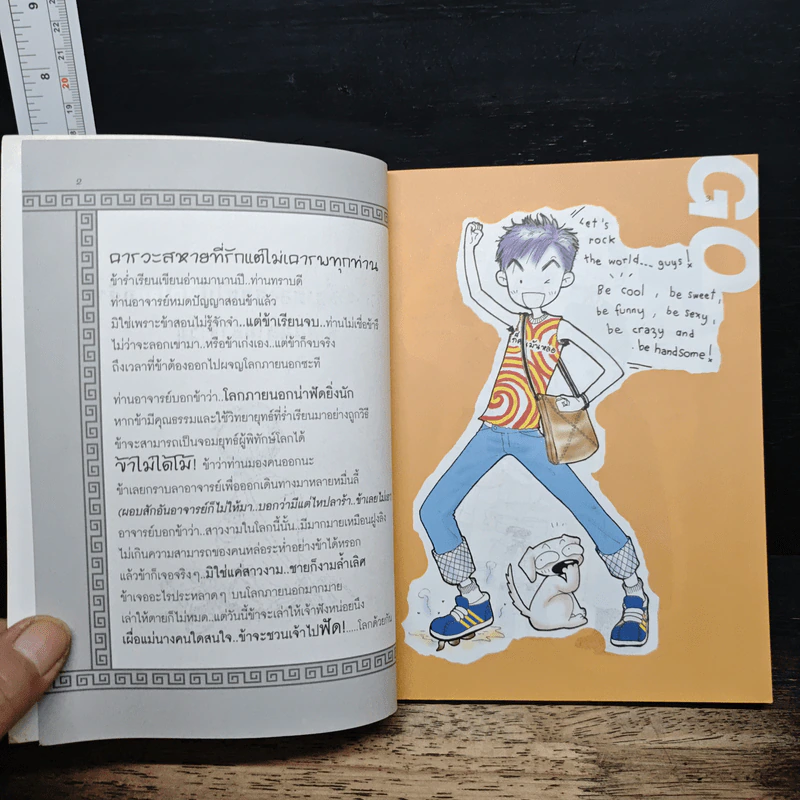 9
8
22
21
20
19
18
2
คารวะสหายที่รักแต่ไม่เคารพทุกท่าน
ข้าร่ำเรียนเขียนอ่านมานานปี..ท่านทราบดี
ท่านอาจารย์หมดปัญญาสอนข้าแล้ว
มิใช่เพราะข้าสอนไม่รู้จักจำ..แต่ข้าเรียนจบ..ท่านไม่เชื่อข้ารึ
ไม่ว่าจะลอกเขามา..หรือข้าเก่งเอง..แต่ข้าก็จบจริง
ถึงเวลาที่ข้าต้องออกไปผจญโลกภายนอกซะที
ท่านอาจารย์บอกข้าว่า..โลกภายนอกน่าฟัดยิ่งนัก
หากข้ามีคุณธรรมและใช้วิทยายุทธ์ที่ร่ำเรียนมาอย่างถูกวิธี
ข้าจะสามารถเป็นจอมยุทธ์ผู้พิทักษ์โลกได้
ข้าไม่ได้โม้! ข้าว่าท่านมองคนออกนะ
ข้าเลยกราบลาอาจารย์เพื่อออกเดินทางมาหลายหมื่นลี้
(ผอบสักอันอาจารย์ก็ไม่ให้มา..บอกว่ามีแต่ไหปลาร้า..ข้าเลยไม่เอา
อาจารย์บอกข้าว่า..สาวงามในโลกนี้นั้น..มีมากมายเหมือนฝูงลิง
ไม่เกินความสามารถของคนหล่อระห่ำอย่างข้าได้หรอก
แล้วข้าก็เจอจริงๆ..มิใช่แค่สาวงาม..ชายก็งามล้ำเลิศ
ข้าเจออะไรประหลาดๆ บนโลกภายนอกมากมาย
เล่าให้ตายก็ไม่หมด..แต่วันนี้ข้าจะเล่าให้เจ้าฟังหน่อยนึง
เผื่อแม่นางคนใดสนใจ..ข้าจะชวนเจ้าไปฟัด!.....โลกด้วยกัน
GO
Let's
rock
the world... guys!
Be cool, be sweet,
be funny, be sexy,
be crazy and
be handsome!